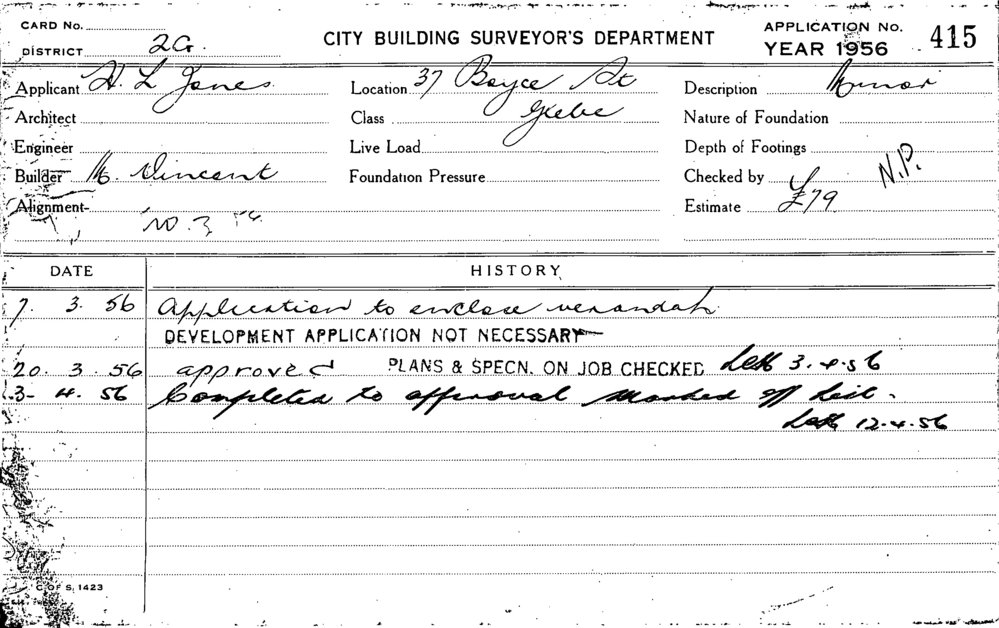 CARD No.
DISTRICT 2G.
CITY BUILDING SURVEYOR'S DEPARTMENT
APPLICATION No. 415
YEAR 1956
Applicant H. L Jones
Location 37 Boyce St
Description Minor
Architect
Class Glebe
Nature of Foundation
Engineer
Live Load
Depth of Footings
Builder M. Vincent
Foundation Pressure
Checked by N.P.
Alignment
Estimate £79
DATE HISTORY
7. 3. 56 Application to enclose verandah
DEVELOPMENT APPLICATION NOT NECESSARY
20. 3. 56 approved PLANS & SPECN. ON JOB CHECKED 3.4.56
3- 4. 56 Completed to approval marked off list.
12.4.56
C OF S. 1423